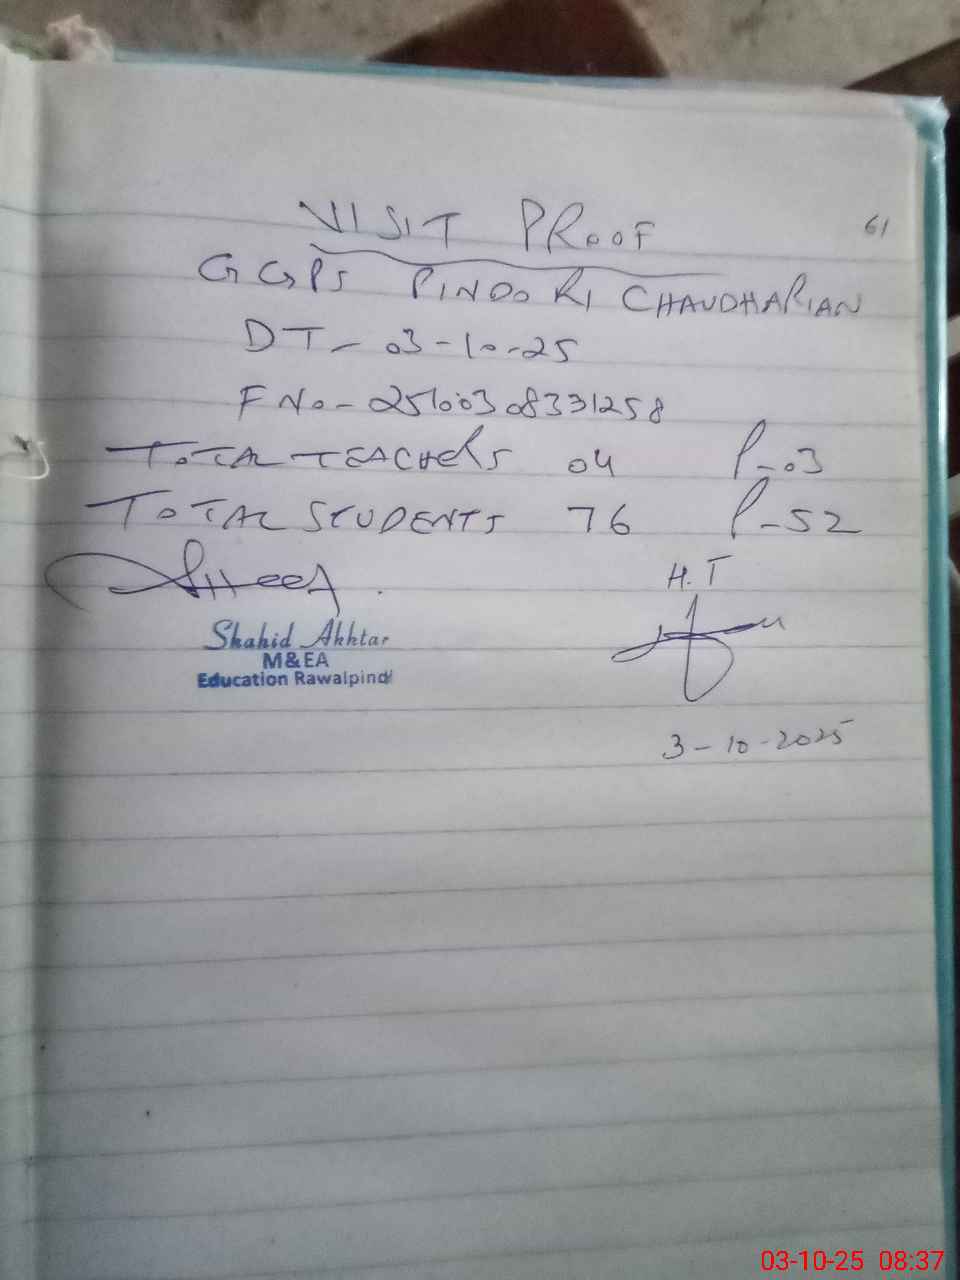 VISIT PROOF
61
GGPS PINDORI CHAUDHARIAN
DT - 03-10-25
F No - 25100308331258
TOTAL TEACHERS 04 P-03
TOTAL STUDENTS 76 P-52
H.T
Shahid Akhtar
M&EA
Education Rawalpindi
3-10-2025
03-10-25 08:37